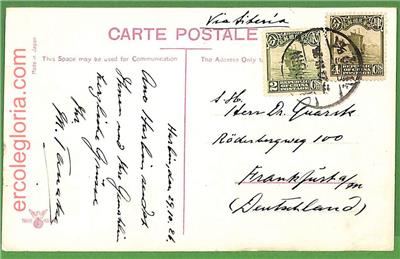 Via Siberia
CARTE POSTALE
Made in Japan
This Space may be used for Communication
The Address Only to
Harbin, den 29.10.26.
Aus Harbin sendet
Ihnen und Ihrer
herzliche Grüsse
Ihr
M. Tanaka
S. H.
Herrn Dr. Quarck
Röderbergweg 100
Frankfurt a/m
(Deutschland)
2
Cts
4
Cts
ercolegloria.com